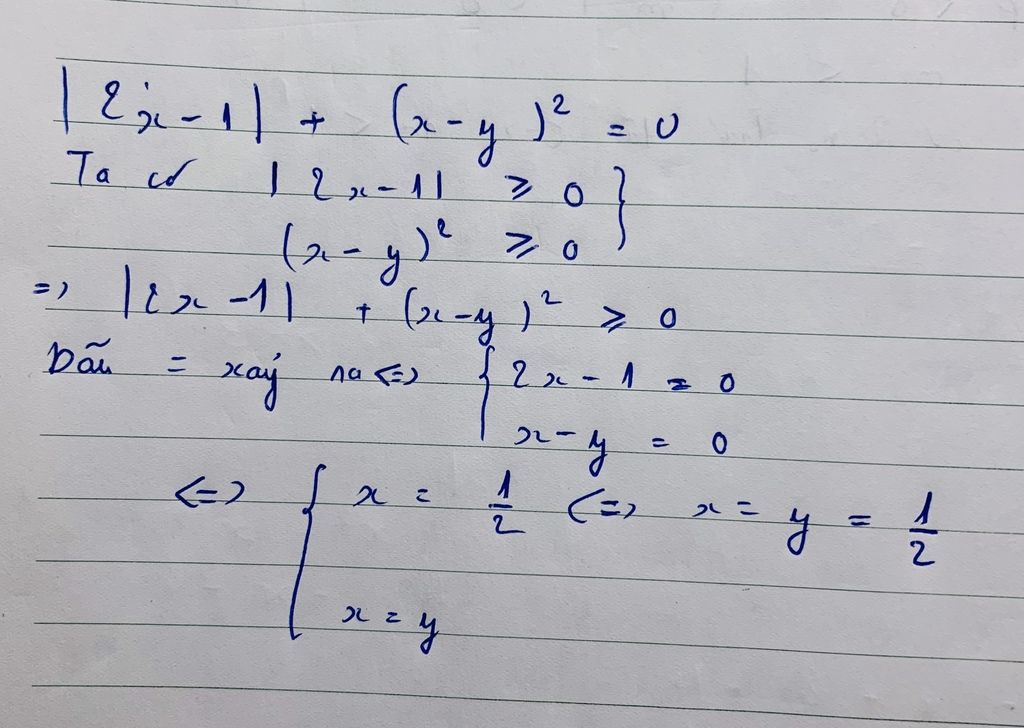 |2x - 1| + (x - y)² = 0
Ta có |2x - 1| ≥ 0 }
(x - y)² ≥ 0
=> |2x - 1| + (x - y)² ≥ 0
Dấu = xảy ra <=> { 2x - 1 = 0
x - y = 0
<=> { x = 1/2 <=> x = y = 1/2
x = y